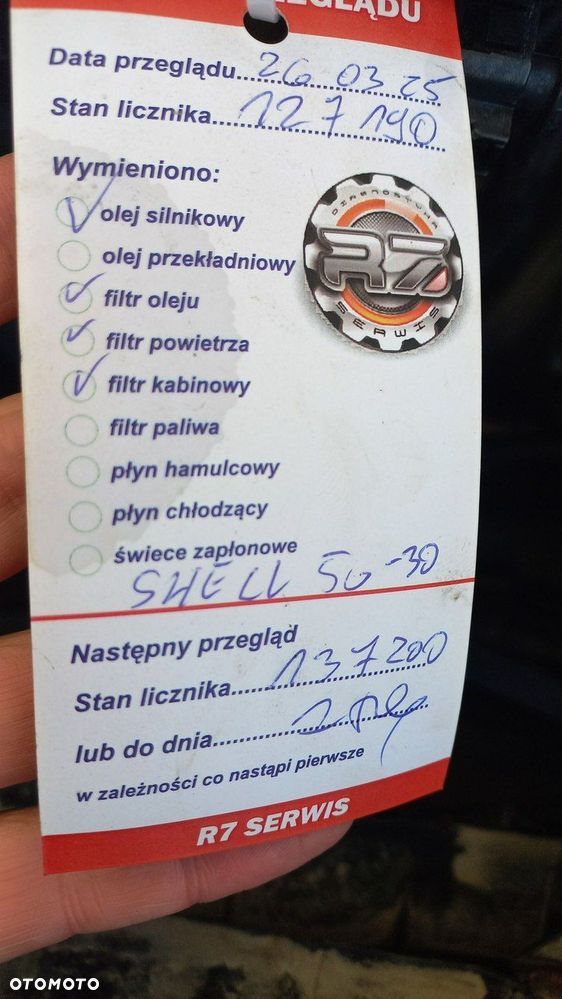 PRZEGLĄDU
Data przeglądu 26 03 25
Stan licznika 127 190
Wymieniono:
olej silnikowy
olej przekładniowy
filtr oleju
filtr powietrza
filtr kabinowy
filtr paliwa
płyn hamulcowy
płyn chłodzący
świece zapłonowe
DIAGNOSTYKA
R7
SERWIS
SHELL 5W-30
Następny przegląd
Stan licznika 137 200
lub do dnia
w zależności co nastąpi pierwsze
R7 SERWIS
OTOMOTO